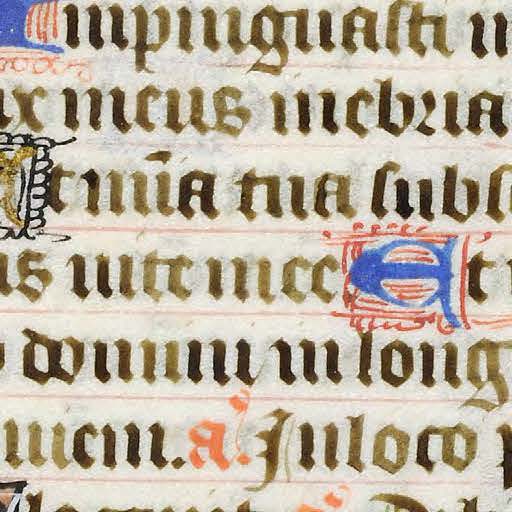 Inpinguasti i
ix meus inebria
Et mīa tua subs
us uite mee Et
domini in long
inem. a. In loco p